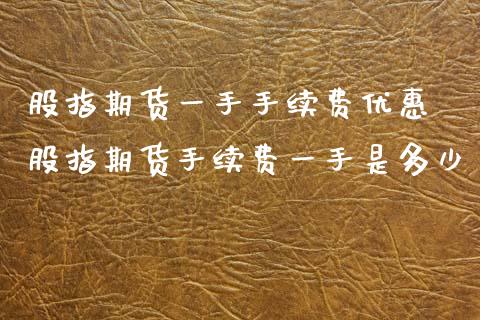 股指期货一手手续费优惠
股指期货手续费一手是多少